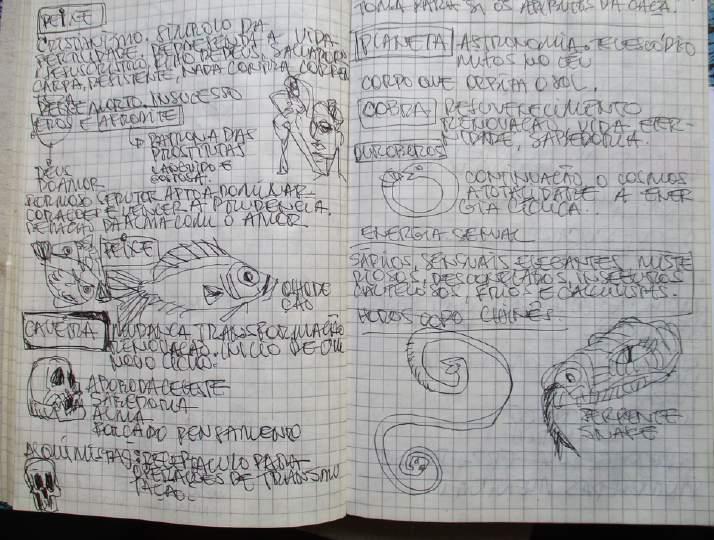 PEIXE
CRISTIANISMO. SÍMBOLO DA
FERTILIDADE, REPRESENTA A VIDA
CARPA, PERSISTENTE, NADA CONTRA CORREN
PEIXE MORTO. INSUCESSO
EROS E AFRODITE
PATRONA DAS
PROSTITUTAS
DEUS
DO AMOR
FORMOSO SEDUTOR APTO A DOMINAR
CORAÇÕES E VENCER A PRUDENCIA.
RELAÇÃO DA ALMA COM O AMOR
PEIXE
OLHO DE
CÃO
CAVEIRA MUDANÇA TRANSFORMAÇÃO
RENOVAÇÃO. INICIO DE UM
NOVO CICLO.
ABOBODA CELESTE
SABEDORIA
ALMA
FORÇA DO PENSAMENTO
ALQUIMISTAS: RECEPTACULO PARA
OPERAÇÕES DE TRANSMU
TAÇÃO.
TOMA PARA SI OS ATRIBUTOS DA CAÇA.
PLANETA ASTRONOMIA. TELESCÓPIO
MITOS NO CÉU
CORPO QUE ORBITA O SOL.
COBRA REJUVENESCIMENTO
RENOVAÇÃO, VIDA ETER-
NIDADE, SABEDORIA.
OUROBOROS
CONTINUAÇÃO O COSMOS
A TOTALIDADE A ENER
GIA CICLICA..
ENERGIA SEXUAL
SÁBIOS, SENSUAIS ELEGANTES MISTE
RIOSOS, DESCONFIADOS, INSEGUROS
CAUTELOSOS, FRIOS E CALCULISTAS.
HOROSCOPO CHINÊS.
SERPENTE
SNAKE